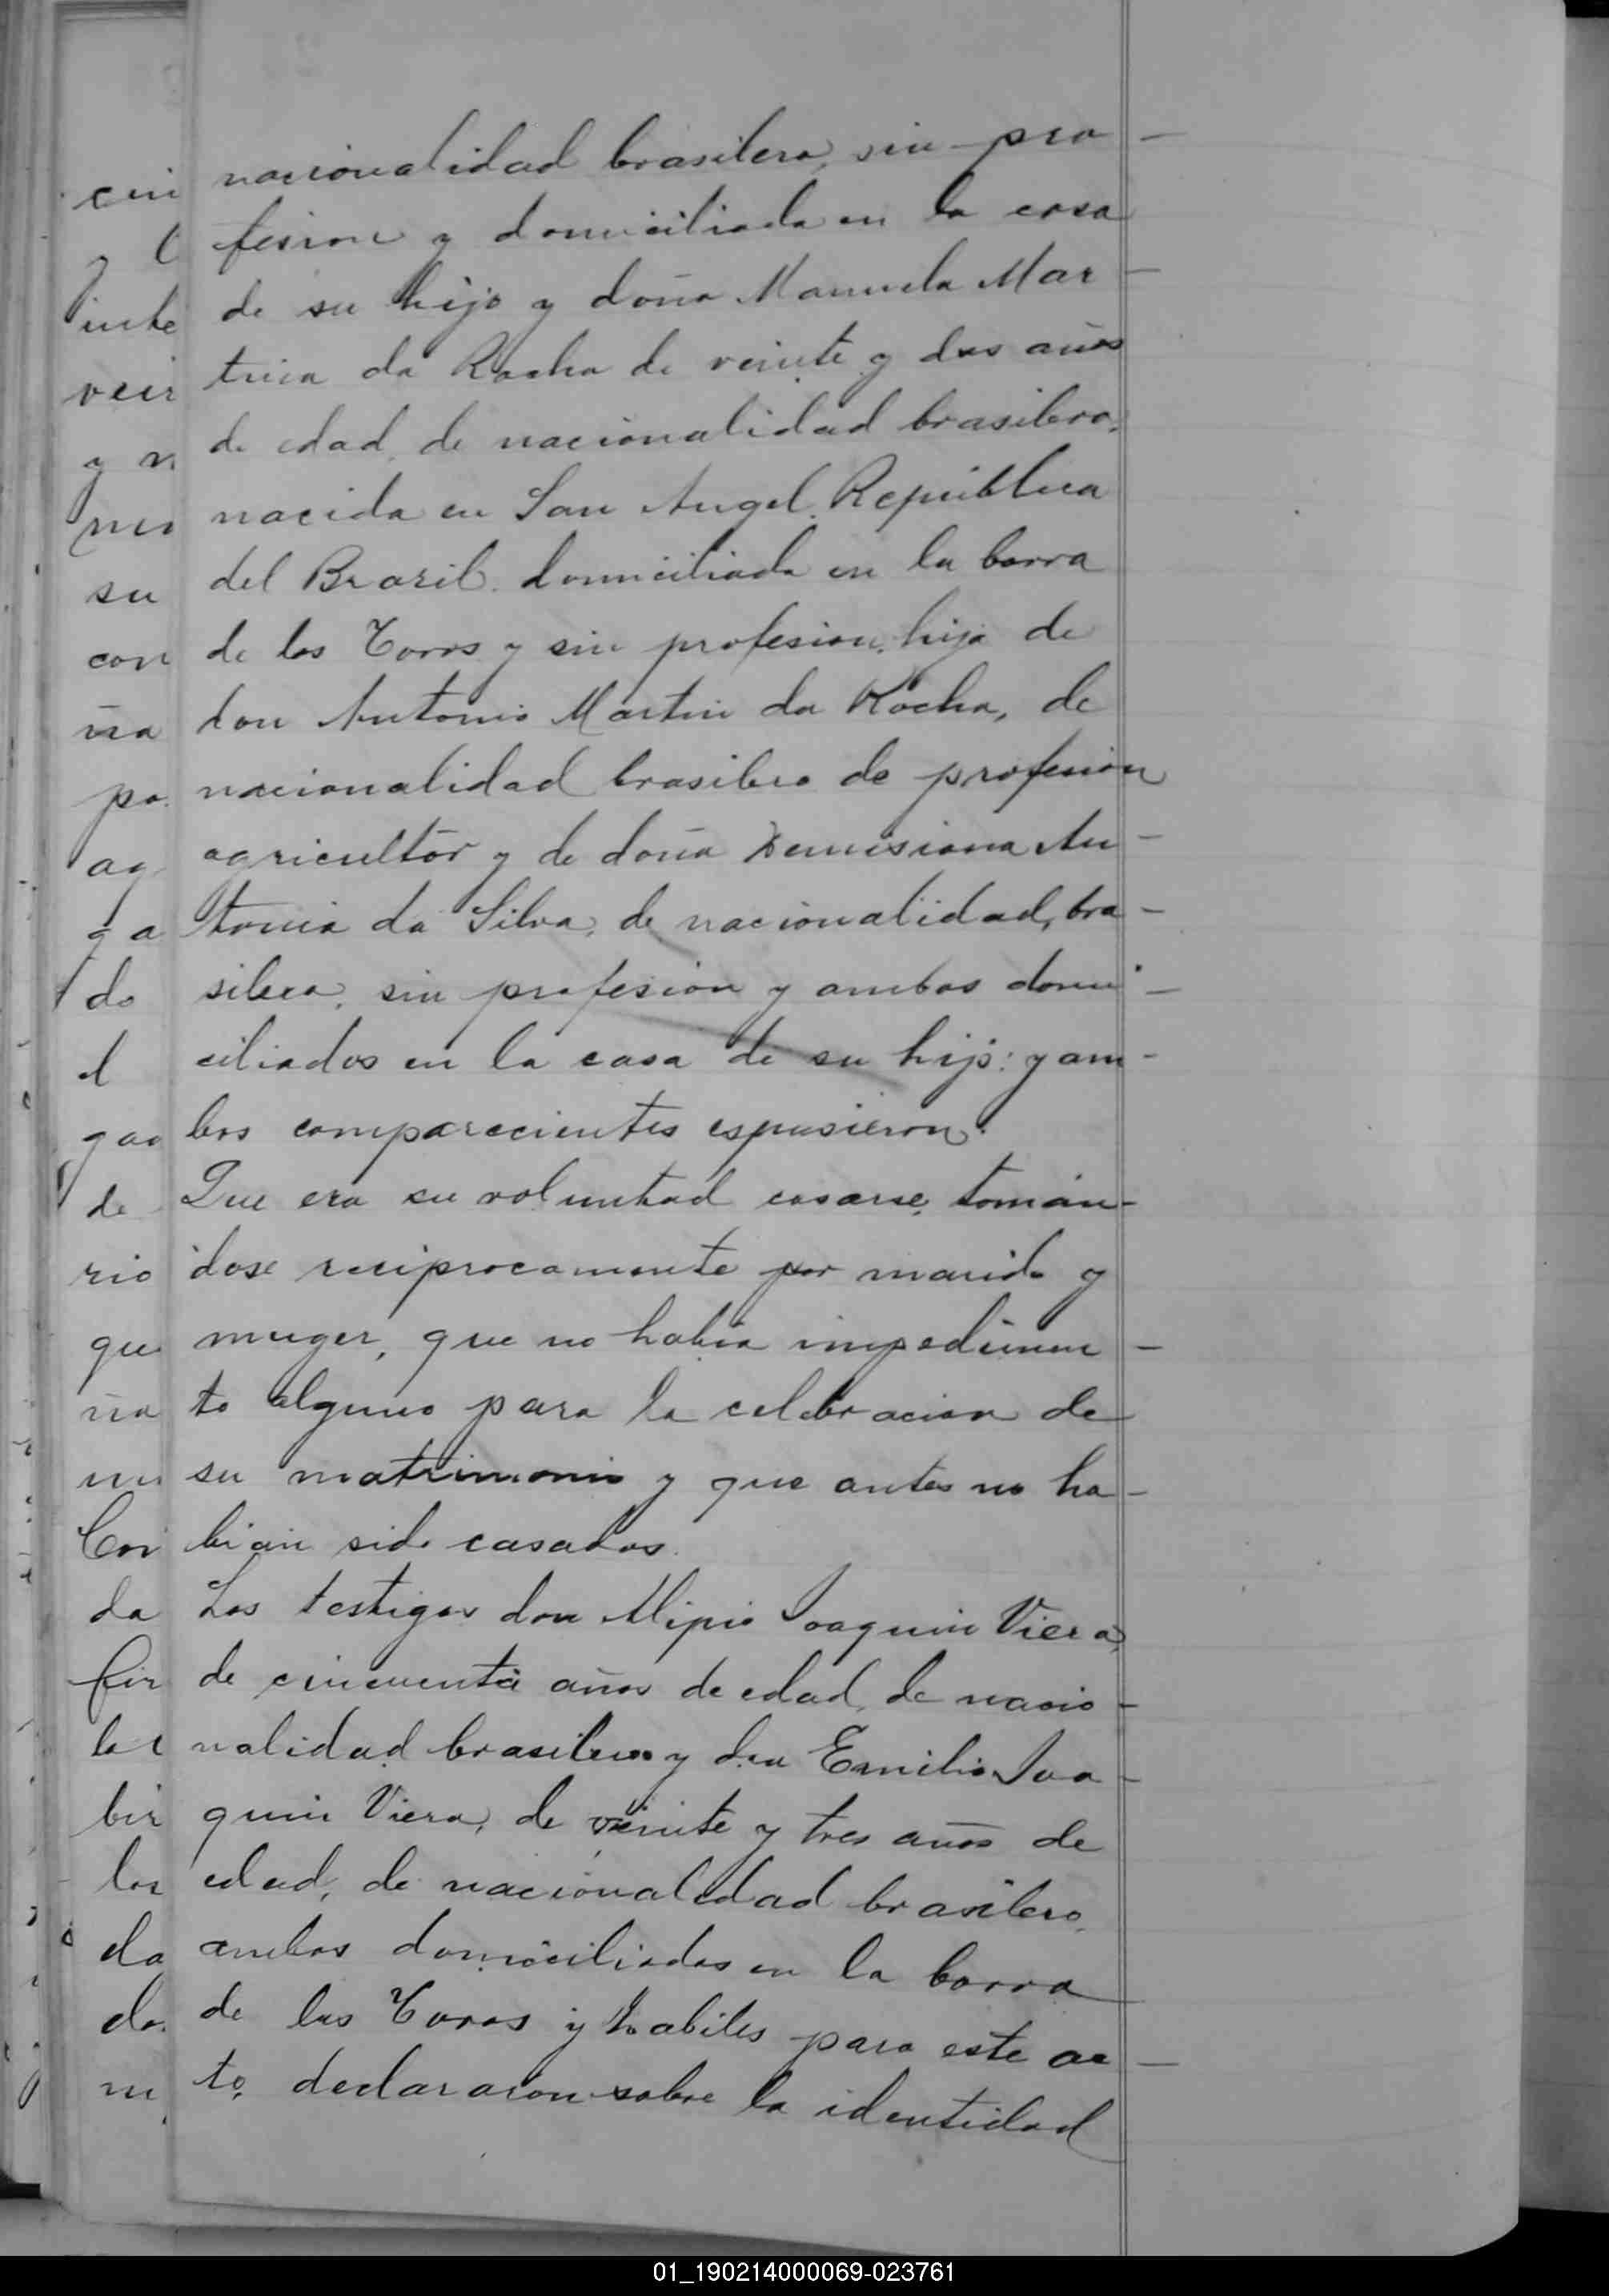 nacionalidad brasilera, sin pro-
fesion y domiciliada en la casa
de su hijo y doña Manuela Mar-
tina da Rocha de veinte y dos años
de edad, de nacionalidad brasilera,
nacida en San Angel, República
del Brasil, domiciliada en la barra
de los Toros y sin profesion, hija de
don Antonio Martin da Rocha, de
nacionalidad brasilero de profesion
agricultor y de doña An-
tonia da Silva, de nacionalidad, bra-
silera, sin profesion y ambos domi-
ciliados en la casa de su hijo: y am-
bos comparecientes espusieron:
Que era su voluntad casarse, toman-
dose reciprocamente por marido y
muger, que no habia impedimen-
to alguno para la celebracion de
su matrimonio y que antes no ha-
bian sido casados.
Los testigos don Alipio Joaquin Viera,
de cincuenta años de edad, de nacio-
nalidad brasilero y don Emilio Joa-
quin Viera, de veinte y tres años de
edad, de nacionalidad brasilero,
ambos domiciliados en la barra
de los Toros y habiles para este ac-
to, declararon sobre la identidad
cin
y
inte
vein
y n
su
con
ña
po
ag
y a
do
el
de
rio
que
ña
un
Cor
da
fir
bir
los
da
do
01_190214000069-023761